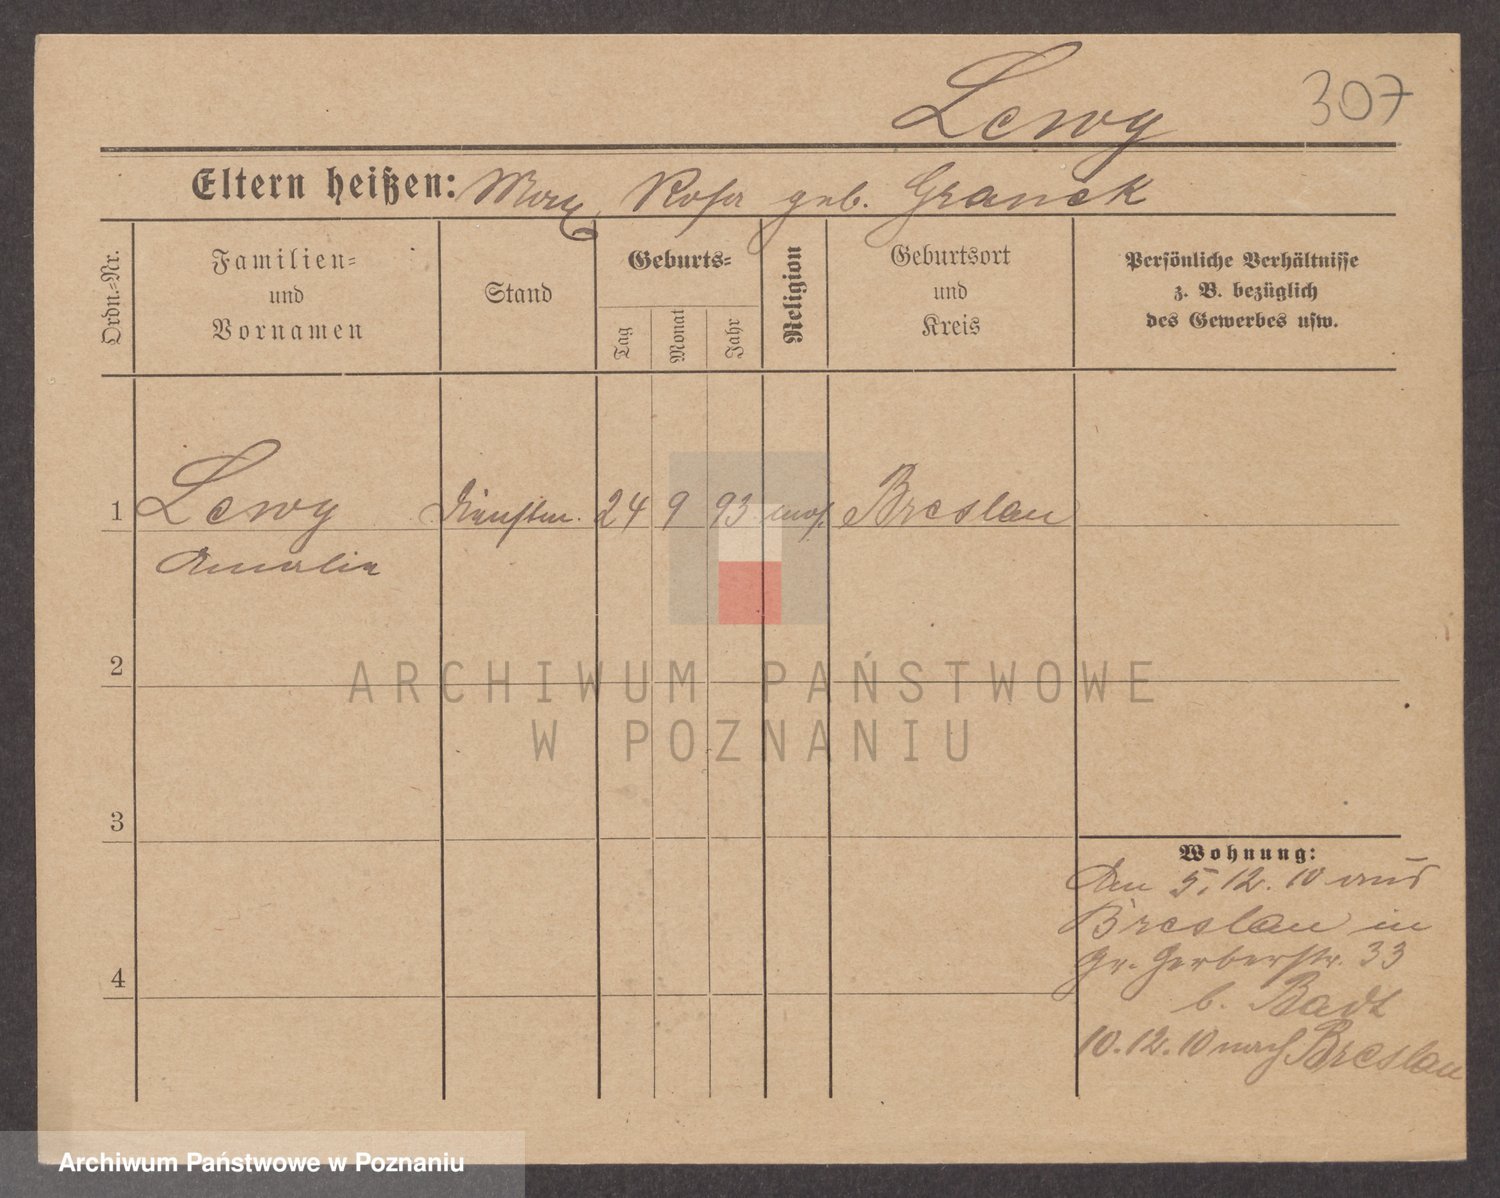 Lewy
307
Eltern heißen: Max, Rosa geb. Granek
Ordn.-Nr.
Familien-
und
Vornamen
Stand
Geburts-
Tag
Monat
Jahr
Religion
Geburtsort
und
Kreis
Persönliche Verhältnisse
z. B. bezüglich
des Gewerbes usw.
1 Lewy Dienstm. 24 9 93 mos. Breslau
Amalie
2
3
4
Wohnung:
Am 5.12.10 aus
Breslau in
Gr. Gerberstr. 33
b. Badt
10.12.10 nach Breslau
ARCHIWUM PAŃSTWOWE
W POZNANIU
Archiwum Państwowe w Poznaniu